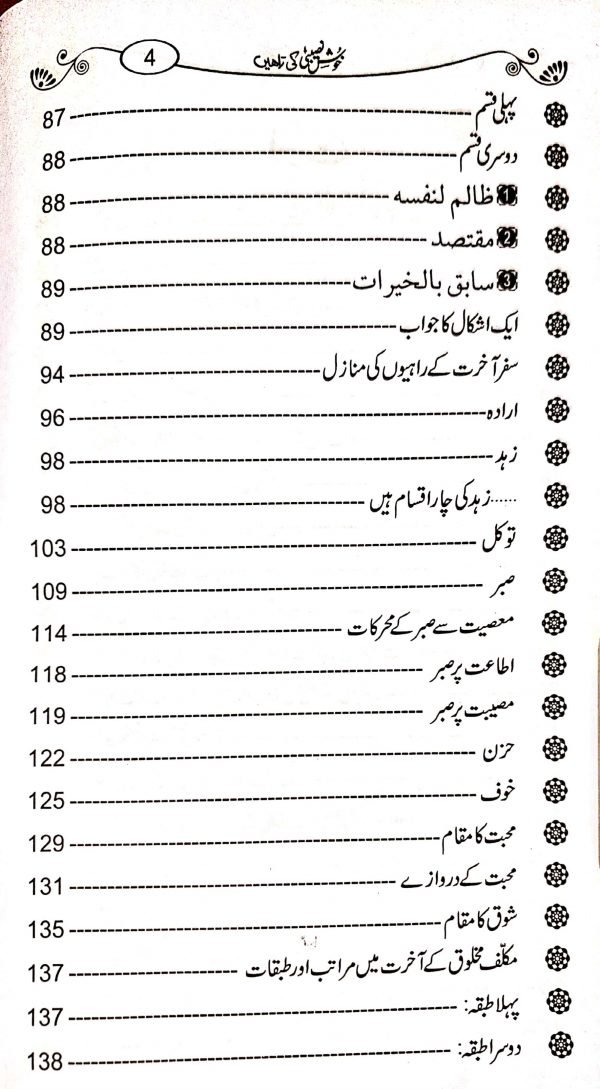 خوش نصیبی کی راہیں 4
پہلی قسم 87
دوسری قسم 88
1 ظالم لنفسه 88
2 مقتصد 88
3 سابق بالخیرات 89
ایک اشکال کا جواب 89
سفر آخرت کے راہیوں کی منازل 94
ارادہ 96
زہد 98
......زہد کی چار اقسام ہیں 98
توکل 103
صبر 109
معصیت سے صبر کے محرکات 114
اطاعت پر صبر 118
مصیبت پر صبر 119
حزن 122
خوف 125
محبت کا مقام 129
محبت کے دروازے 131
شوق کا مقام 135
مکلّف مخلوق کے آخرت میں مراتب اور طبقات 137
پہلا طبقہ: 137
دوسرا طبقہ: 138